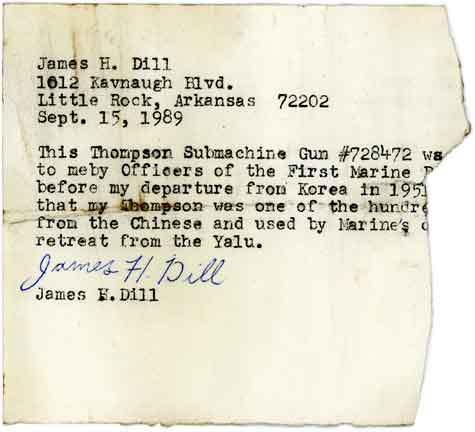 James H. Dill
1012 Kavnaugh Blvd.
Little Rock, Arkansas 72202
Sept. 15, 1989
This Thompson Submachine Gun #728472 ws
to meby Officers of the First Marine
before my departure from Korea in 1951
that my Thompson was one of the hundre
from the Chinese and used by Marine's
retreat from the Yalu.
James H. Dill
James H.Dill